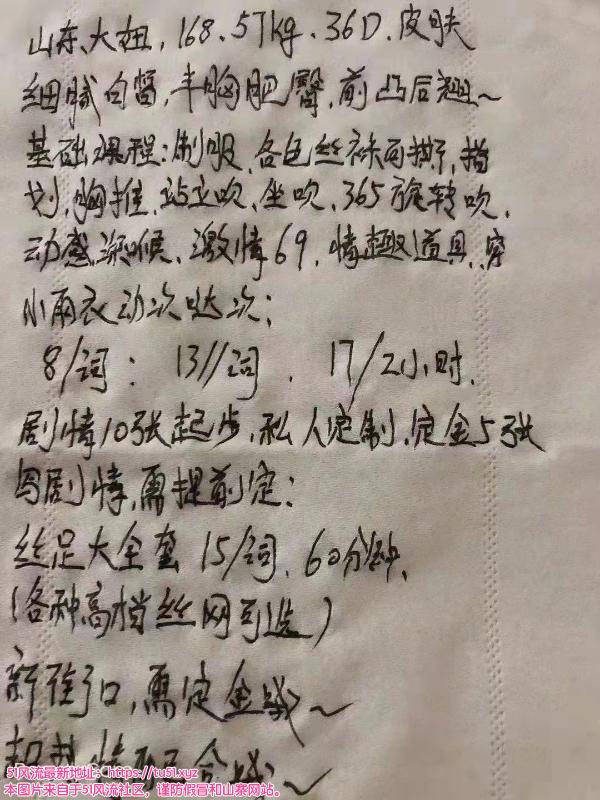 山东、大妞,168.57kg、36D、皮肤
细腻白皙,丰胸肥臀,前凸后翘~
基础课程:制服、各色丝袜可撕,指
划,胸推、站立吹、坐吹、365旋转吹、
动感深喉、激情69、情趣道具、穿
小雨衣动次哒次;
8/词: 13//词、17/2小时、
剧情10张起步、私人定制、定金5张
写剧情,需提前定;
丝足大全套 15/词、60分钟、
(各种高档丝网可选)
新街口,需定金哦~
金哦~
51风流最新地址:https://tu51.xyz
本图片来自于51风流社区,谨防假冒和山寨网站。